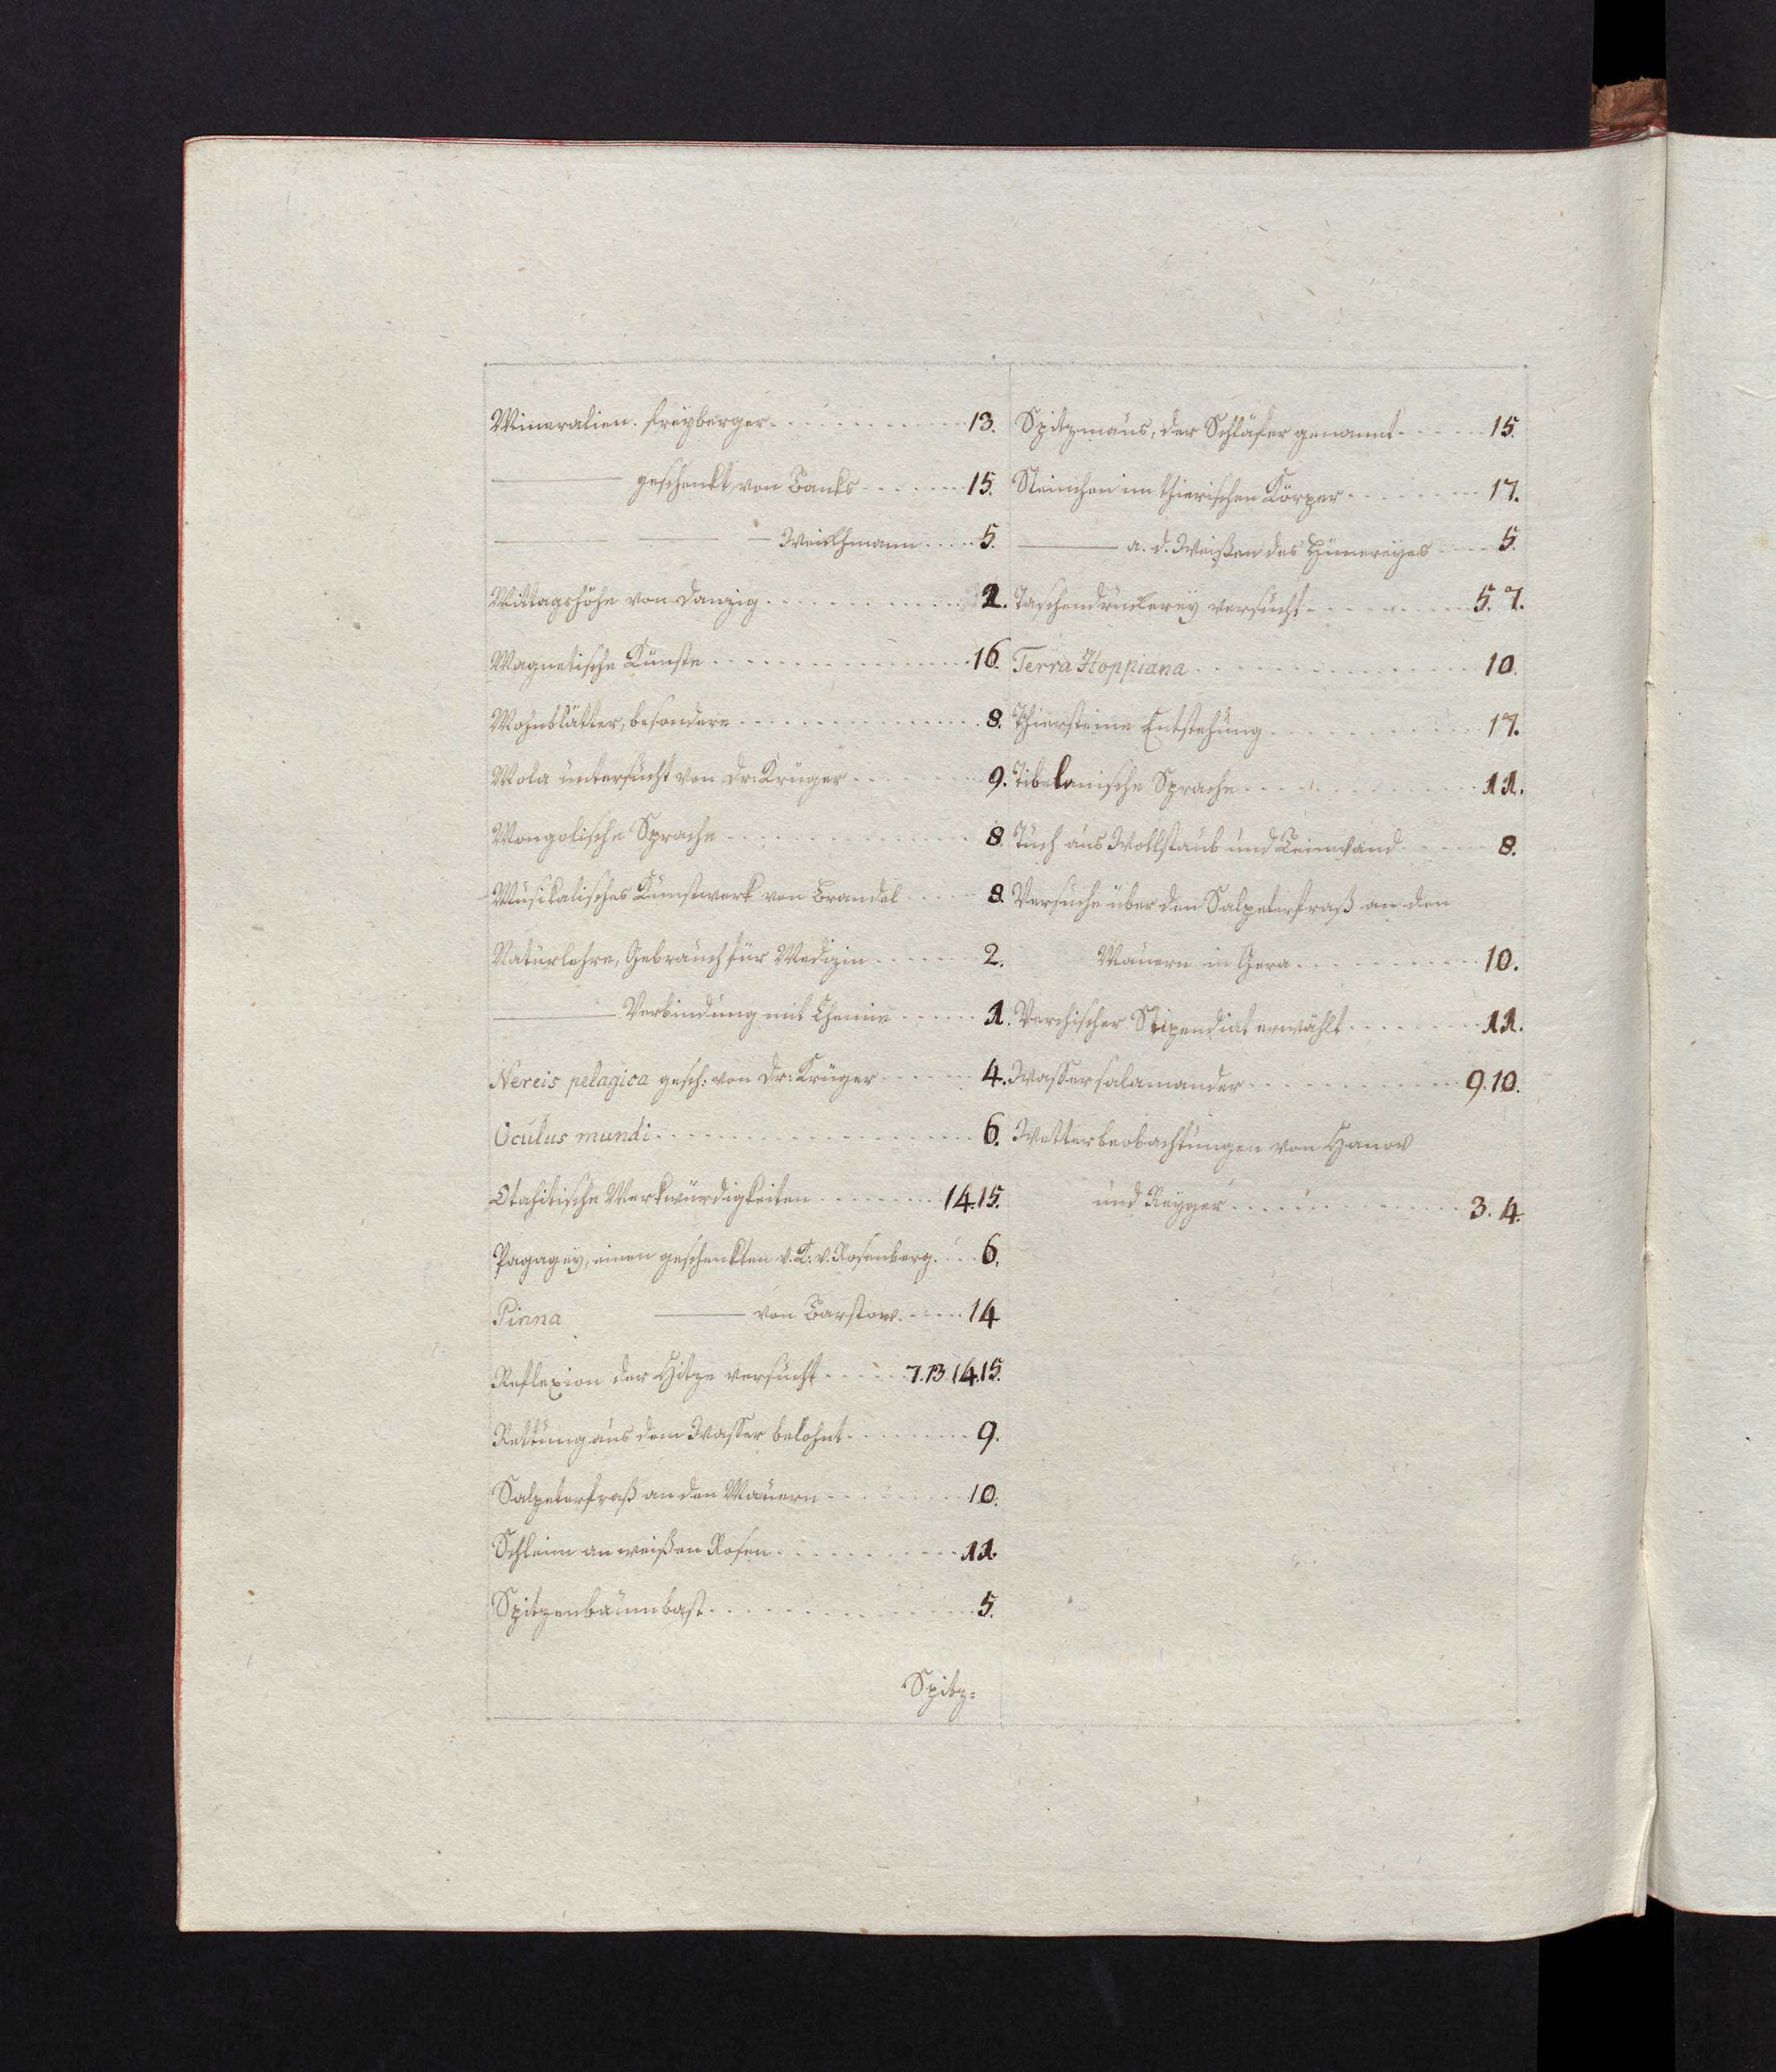 Mineralien. freyberger 13.
——— geschenkt, von Banks 15.
——— ——— — Weickhmann 5.
Mittagshöhe von Danzig 2.
Magnetische Künste 16.
Mohnblätter, besondere 8.
Mola untersucht von Dr: Krüger 9.
Mongolische Sprache 8.
Musikalisches Kunstwerk von Brandel 8.
Naturlehre, Gebrauch für Medizin 2.
——— Verbindung mit Chemie 1.
Nereis pelagica gesch: von Dr: Krüger 4.
Oculus mundi 6.
Otahitische Merkwürdigkeiten 14.15.
Papagey, einen geschenkten v. K: v. Rosenberg. 6.
Pinna ——— von Barstow. 14
Reflexion der Hitze versucht 7.13.14.15.
Rettung aus dem Wasser belohnt 9.
Salpeterfraß an den Mauern 10.
Schleim an weißen Rosen 11.
Spitzenbaumbast 5.
Spitz=
Spitzmaus, der Schläfer genannt 15.
Steinchen im thierischen Körper 17.
——— a. d. Weißen des Hünereyes 5.
Taschendruckerey versucht 5. 7.
Terra Hoppiana 10.
Thiersteine Entstehung 17.
Tibetanische Sprache 11.
Tuch aus Wollstaub und Leinwand 8.
Versuche über den Salpeterfraß an den
Mauern in Gera 10.
Verchischer Stipendiat erwählt 11.
Wassersalamander 9.10.
Wetterbeobachtungen von Hanow
und Reyger 3. 4.